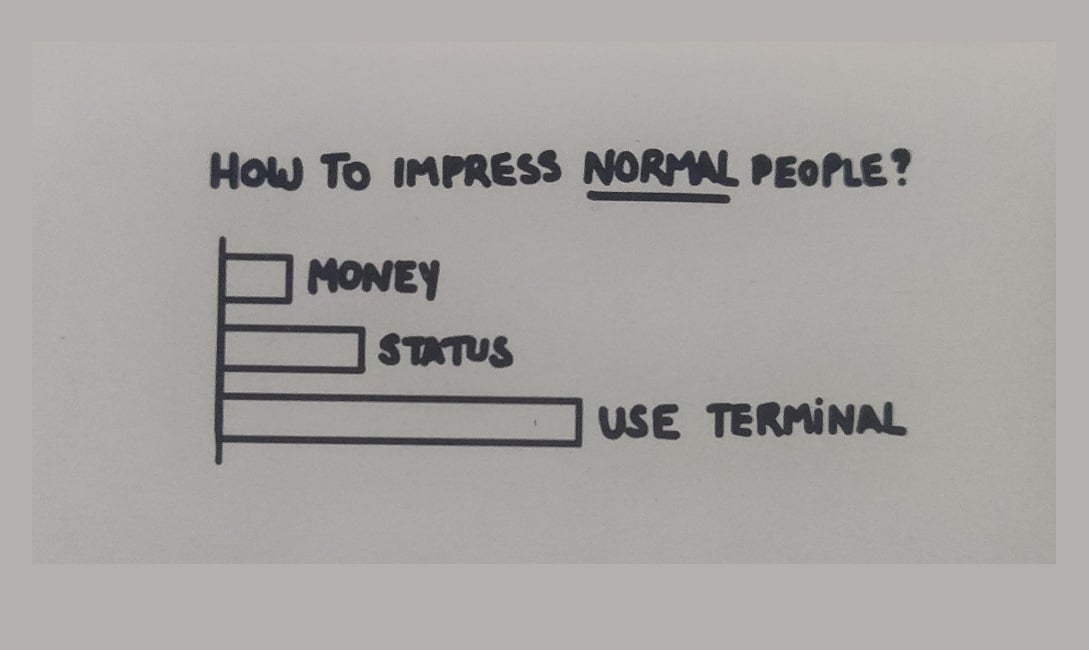 HOW TO IMPRESS NORMAL PEOPLE?
MONEY
STATUS
USE TERMINAL